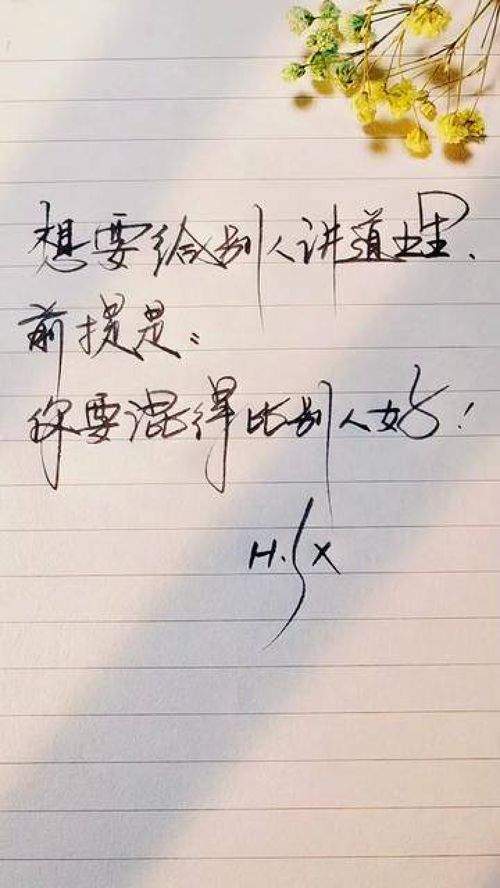 想要给别人讲道理、
前提是：
你要混得比别人好！
H.SX